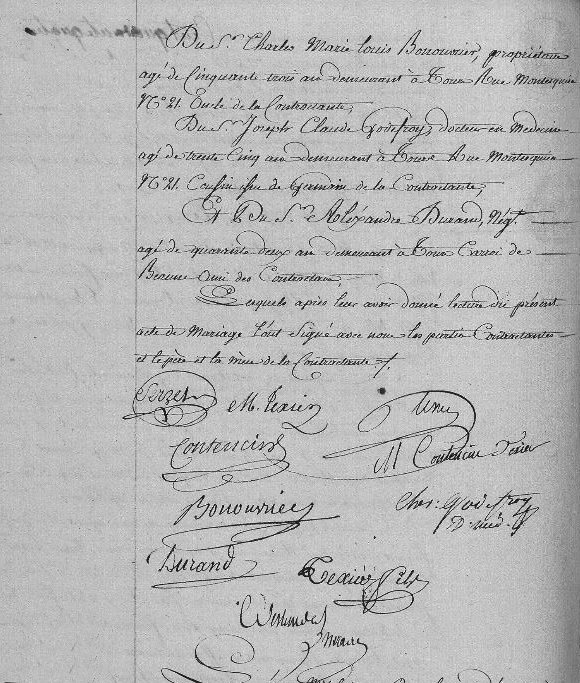 Du Sr. Charles Marie Louis Bonouvrier, propriétaire
agé de Cinquante trois an demeurant à Tour Rue Montesquieu
No. 21. Oncle de la Contractante;
Du Sr. Joseph Claude Godefroy, docteur en Medecine
agé de trente Cinq an demeurant à Tours Rue Montesquieu
No. 21. Cousin issu de Germain de la Contractante;
Et Du Sr. Aléxandre Durand, Négt.
agé de quarante deux an demeurant à Tour Carroi de
Beaune Ami des Contractan;
Lesquels après leur avoir donné lecture du présent
acte de Mariage l'ont Signé avec nous les parties Contractantes
et le père et la mère de la Contractante /.
M. Texier
Contencin
M Contencin Texier
Bonouvrier
Chs. Godefroy
D. med.
Durand
Texier fils
maire